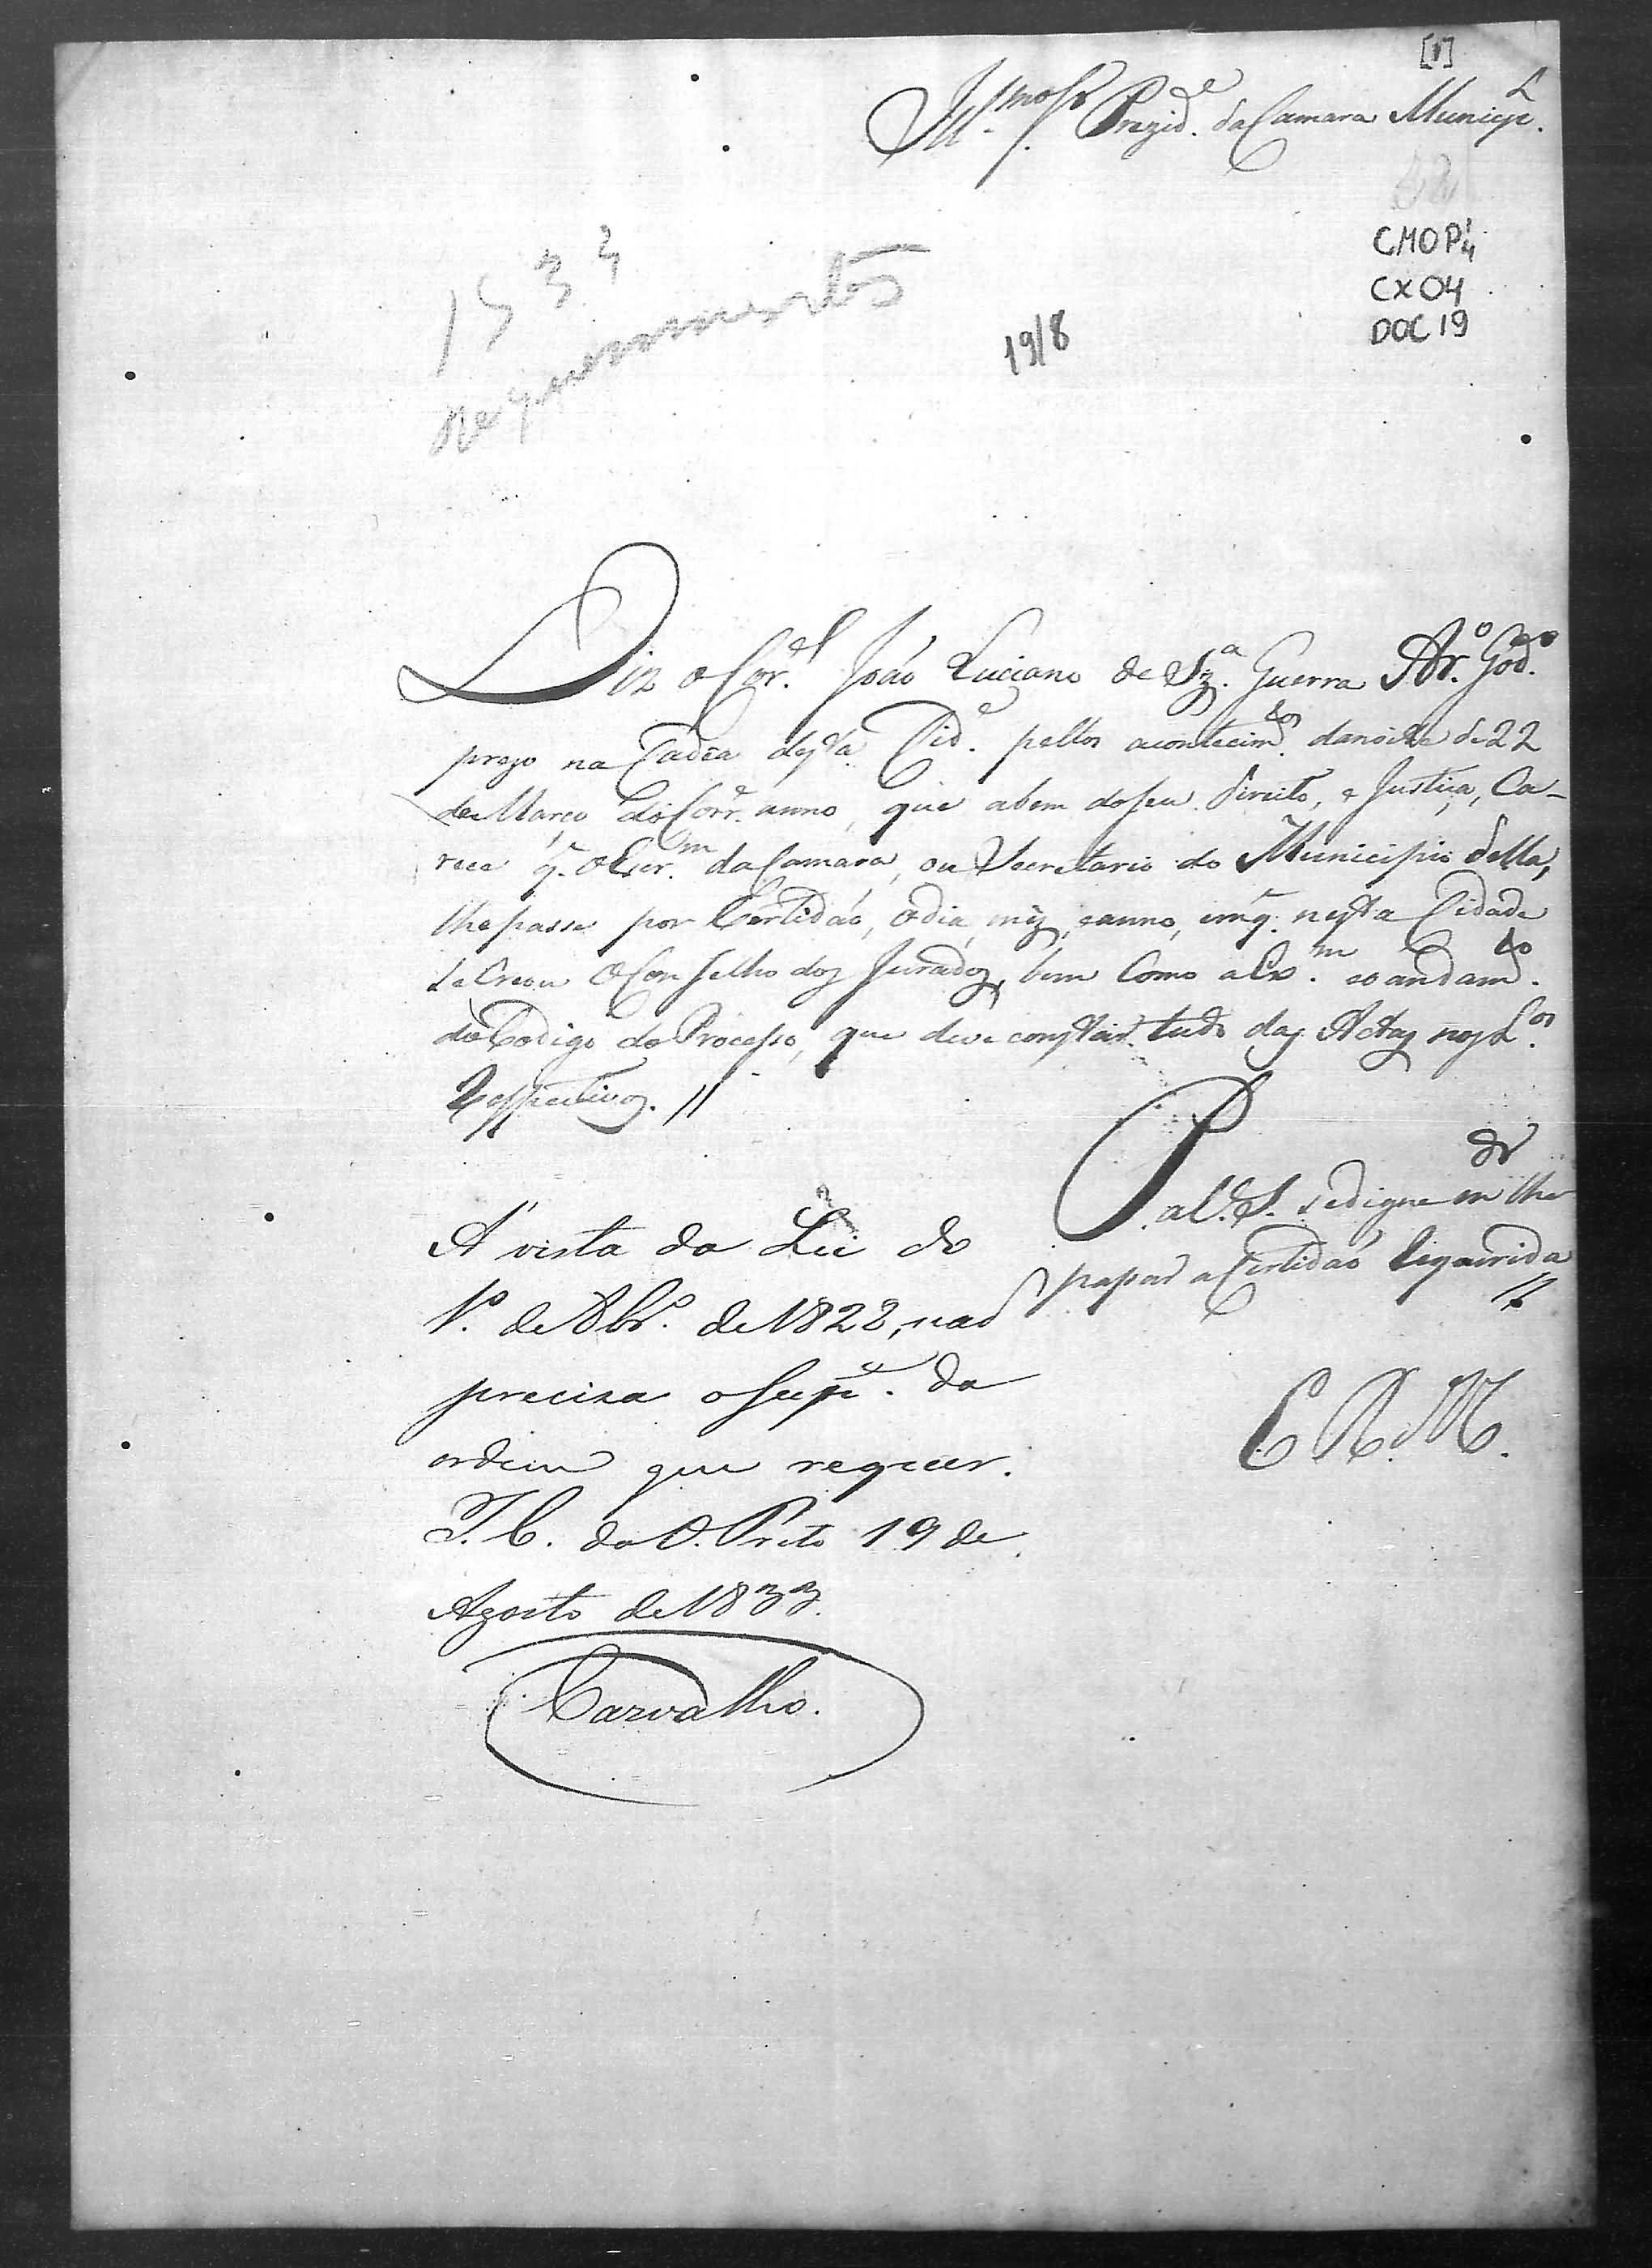 [1]
Ill.mo Sr. Prezid.e da Camara Municip.L
CMOP 1/4
CX 04
DOC 19
1833
requerimentos
19/8
Diz o Cor.el João Luciano de Sz.a Guerra Ar.o God.o
prezo na Cadêa desta Cid.e pellos acontecim.tos danoite de 22
de Março do Corr.e anno, que abem doseu Direito, e Justiça, Ca-
rece q. o Escr.m da Camara, ou Secretario do Municipio della,
lhe passe por Certidaó, odia, mez, eanno, emq. nesta Cidade
se Creou o Conselho dos Jurados, bem Como a Ex.m eo andam.to
do Codigo do Processo, que deve constar tudo das Actas nos L.os
Respectivos. //
P. a V. S. sedigne m.dr lhe
passar a Certidaó Requerida
//
E R. M.
A' vista da Lei do
1.º de 8br.º de 1828, naõ
preciza o Sup.e da
ordem que requer.
I. C. do O. Preto 19 de
Agosto de 1833.
Carvalho.